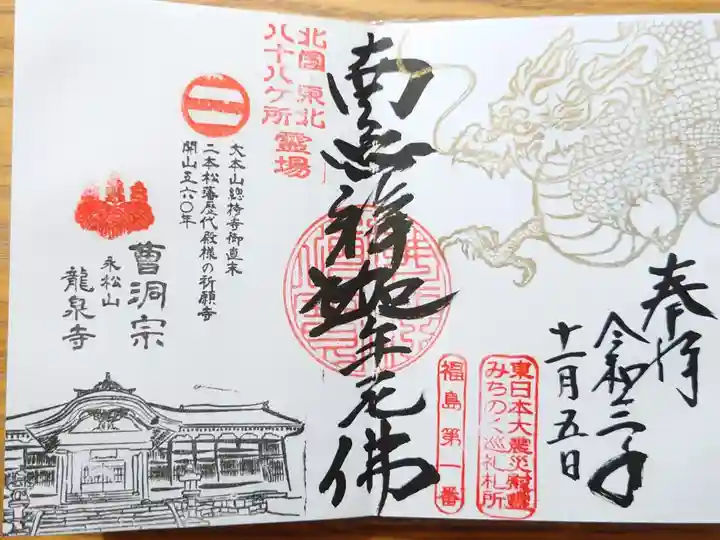 奉拝
令和三年
十一月五日
東日本大震災慰霊
みちのく巡礼札所
福島第一番
南無釋迦牟尼佛
北国 東北
八十八ケ所霊場
大本山總持寺御直末
二本松藩歴代殿様の祈願寺
開山五六〇年
曹洞宗
永松山
龍泉寺